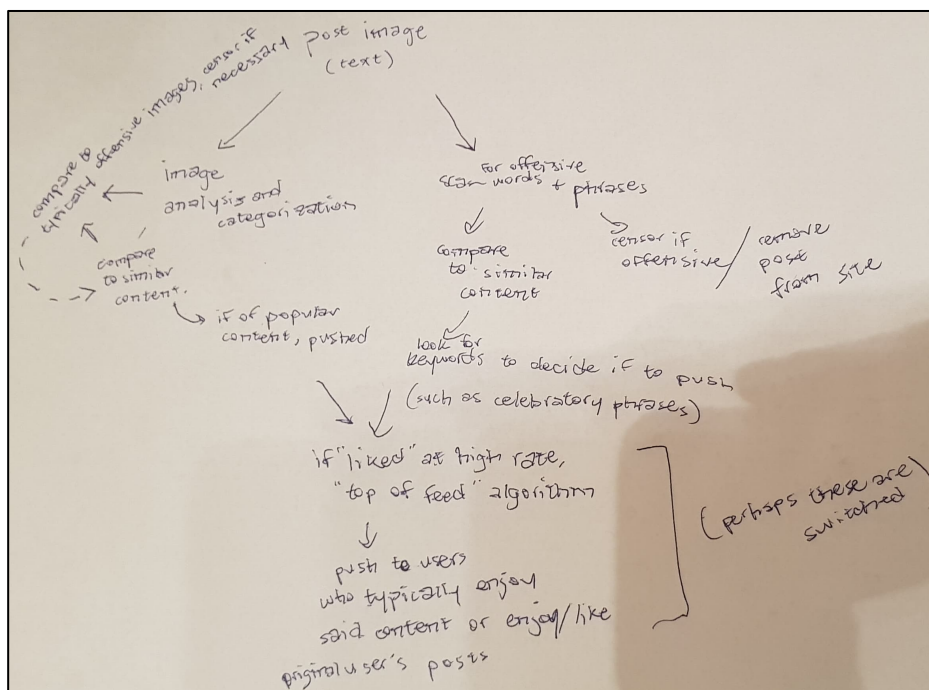 post image
(text)
compare to
typically offensive images, censor if
necessary
image
analysis and
categorization
compare
to similar
content.
if of popular
content, pushed
for offensive
scan words + phrases
compare
to similar
content
censor if
offensive / remove
post
from site
look for
keywords to decide if to push
(such as celebratory phrases)
if "liked" at high rate,
"top of feed" algorithm
push to users
who typically enjoy
said content or enjoy/like
original user's posts
(perhaps these are
switched)